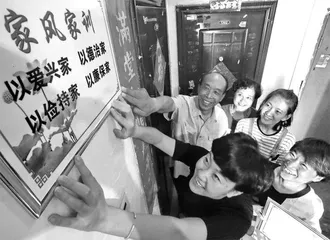 家风家训
以爱兴家
以德治家
以俭持家
以廉保家